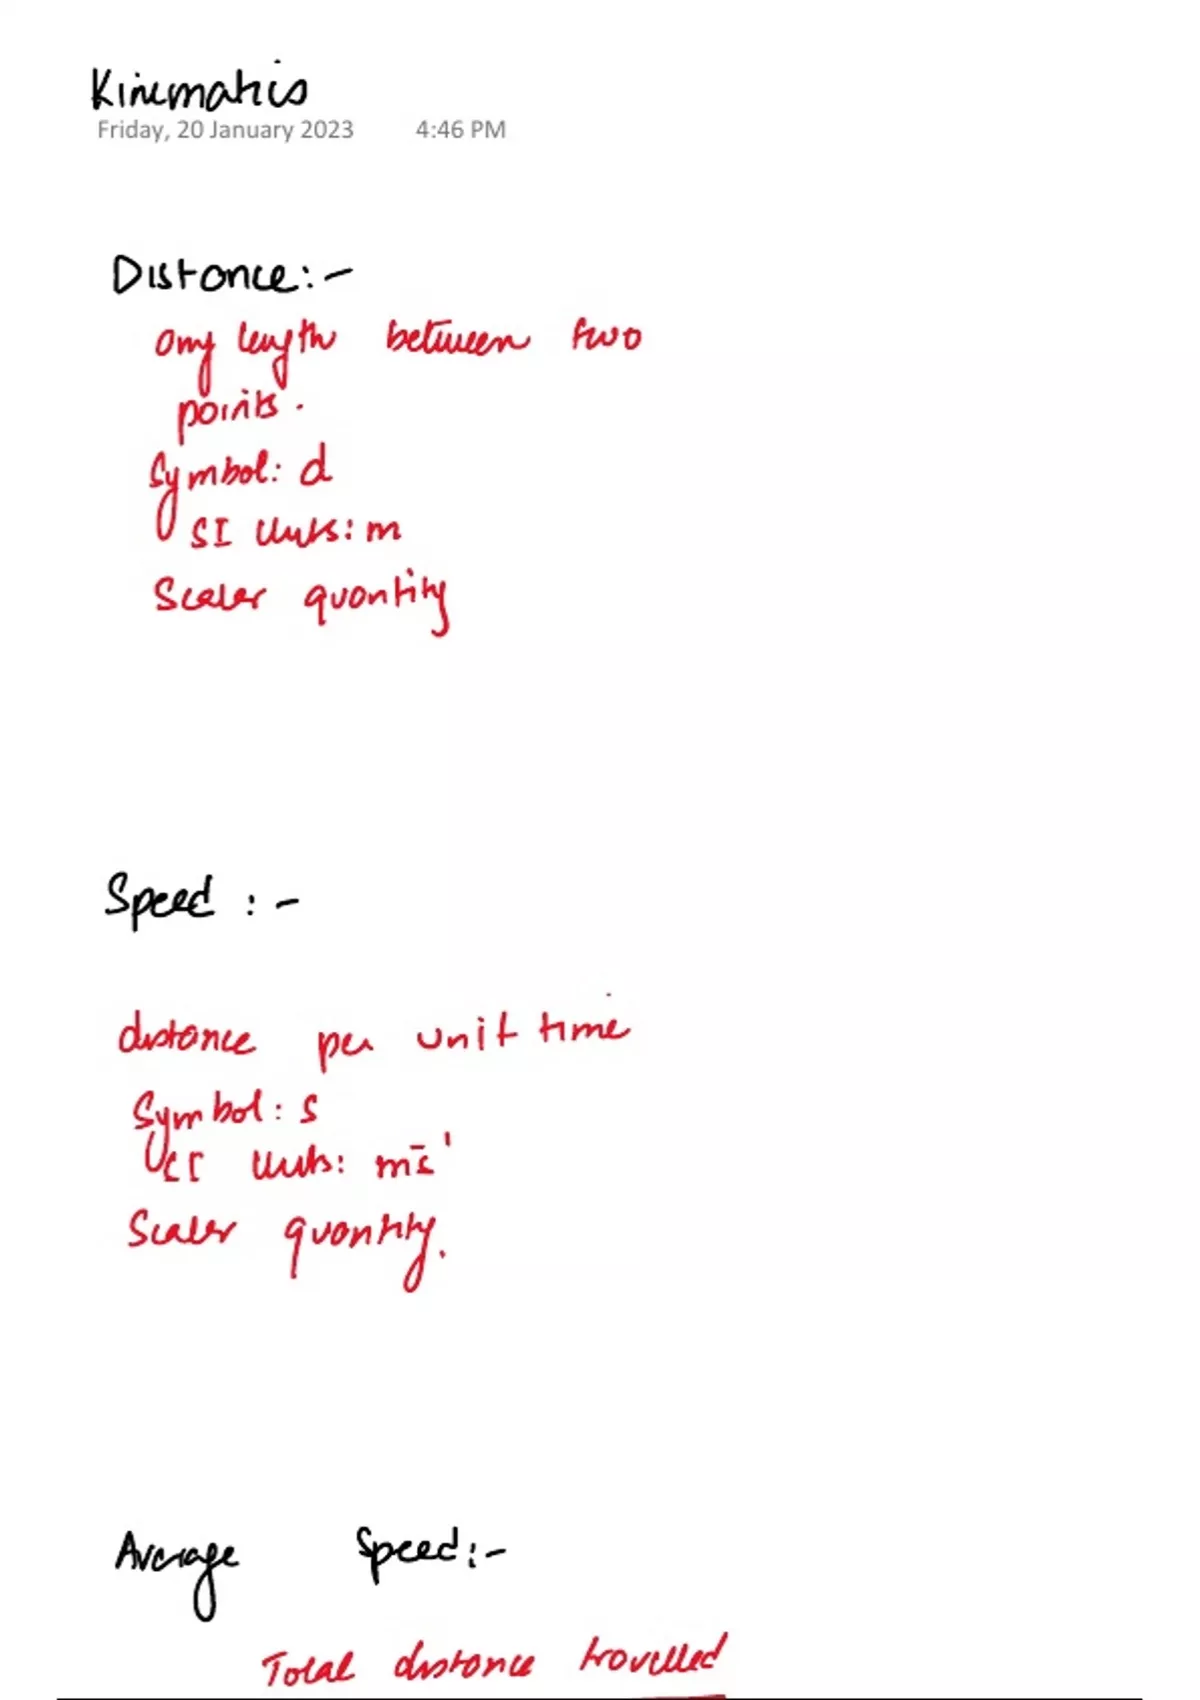 Kinematics
Friday, 20 January 2023 4:46 PM
Distance:-
any length between two
points.
Symbol: d
SI Units: m
Scaler quantity
Speed :-
distance per unit time
Symbol: s
SI Units: ms⁻¹
Scaler quantity.
Average Speed:-
Total distance travelled